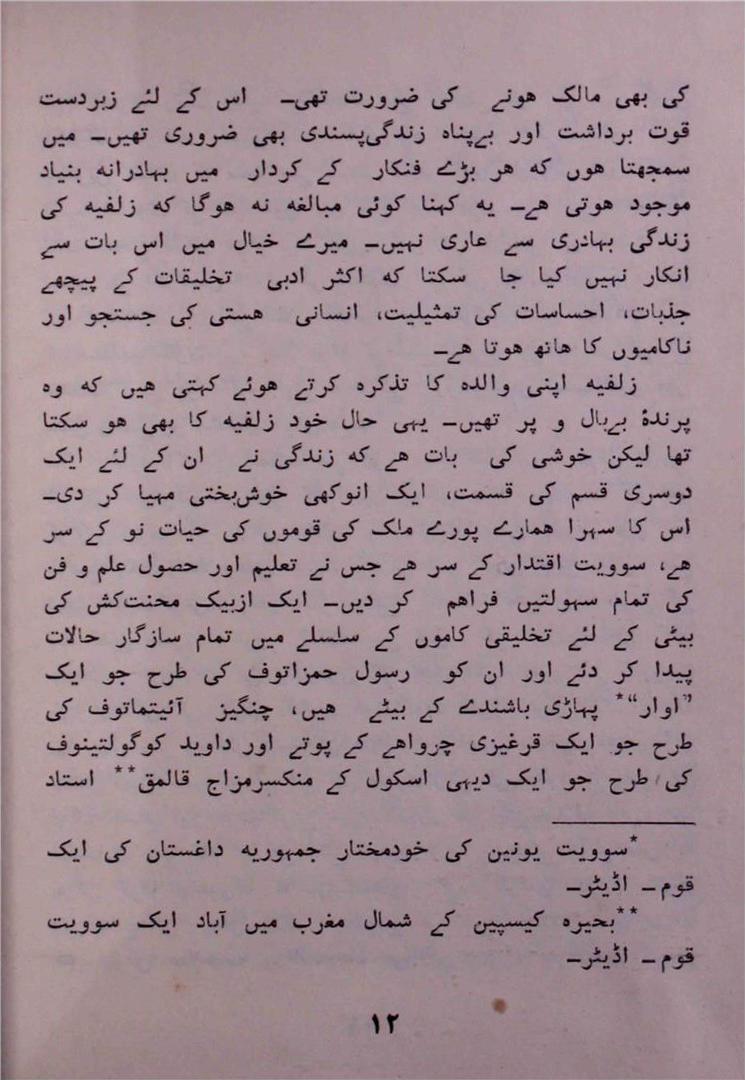 کی بھی مالک ھونے کی ضرورت تھی۔ اس کے لئے زبردست
قوت برداشت اور بےپناہ زندگی‌پسندی بھی ضروری تھیں۔ میں
سمجھتا ھوں کہ ھر بڑے فنکار کے کردار میں بہادرانہ بنیاد
موجود ھوتی ھے۔ یہ کہنا کوئی مبالغہ نہ ھوگا کہ زلفیہ کی
زندگی بہادری سے عاری نہیں۔ میرے خیال میں اس بات سے
انکار نہیں کیا جا سکتا کہ اکثر ادبی تخلیقات کے پیچھے
جذبات، احساسات کی تمثیلیت، انسانی ھستی کی جستجو اور
ناکامیوں کا ھاتھ ھوتا ھے۔
زلفیہ اپنی والدہ کا تذکرہ کرتے ھوئے کہتی ھیں کہ وہ
پرندۂ بےبال و پر تھیں۔ یہی حال خود زلفیہ کا بھی ھو سکتا
تھا لیکن خوشی کی بات ھے کہ زندگی نے ان کے لئے ایک
دوسری قسم کی قسمت، ایک انوکھی خوش‌بختی مہیا کر دی۔
اس کا سہرا ھمارے پورے ملک کی قوموں کی حیات نو کے سر
ھے، سوویت اقتدار کے سر ھے جس نے تعلیم اور حصول علم و فن
کی تمام سہولتیں فراھم کر دیں۔ ایک ازبیک محنت‌کش کی
بیٹی کے لئے تخلیقی کاموں کے سلسلے میں تمام سازگار حالات
پیدا کر دئے اور ان کو رسول حمزاتوف کی طرح جو ایک
”اوار“* پہاڑی باشندے کے بیٹے ھیں، چنگیز آئیتماتوف کی
طرح جو ایک قرغیزی چرواھے کے پوتے اور داوید کوگولتینوف
کی طرح جو ایک دیہی اسکول کے منکسرمزاج قالمق** استاد
*سوویت یونین کی خودمختار جمہوریہ داغستان کی ایک
قوم۔ اڈیٹر۔
**بحیرہ کیسپین کے شمال مغرب میں آباد ایک سوویت
قوم۔ اڈیٹر۔
۱۲